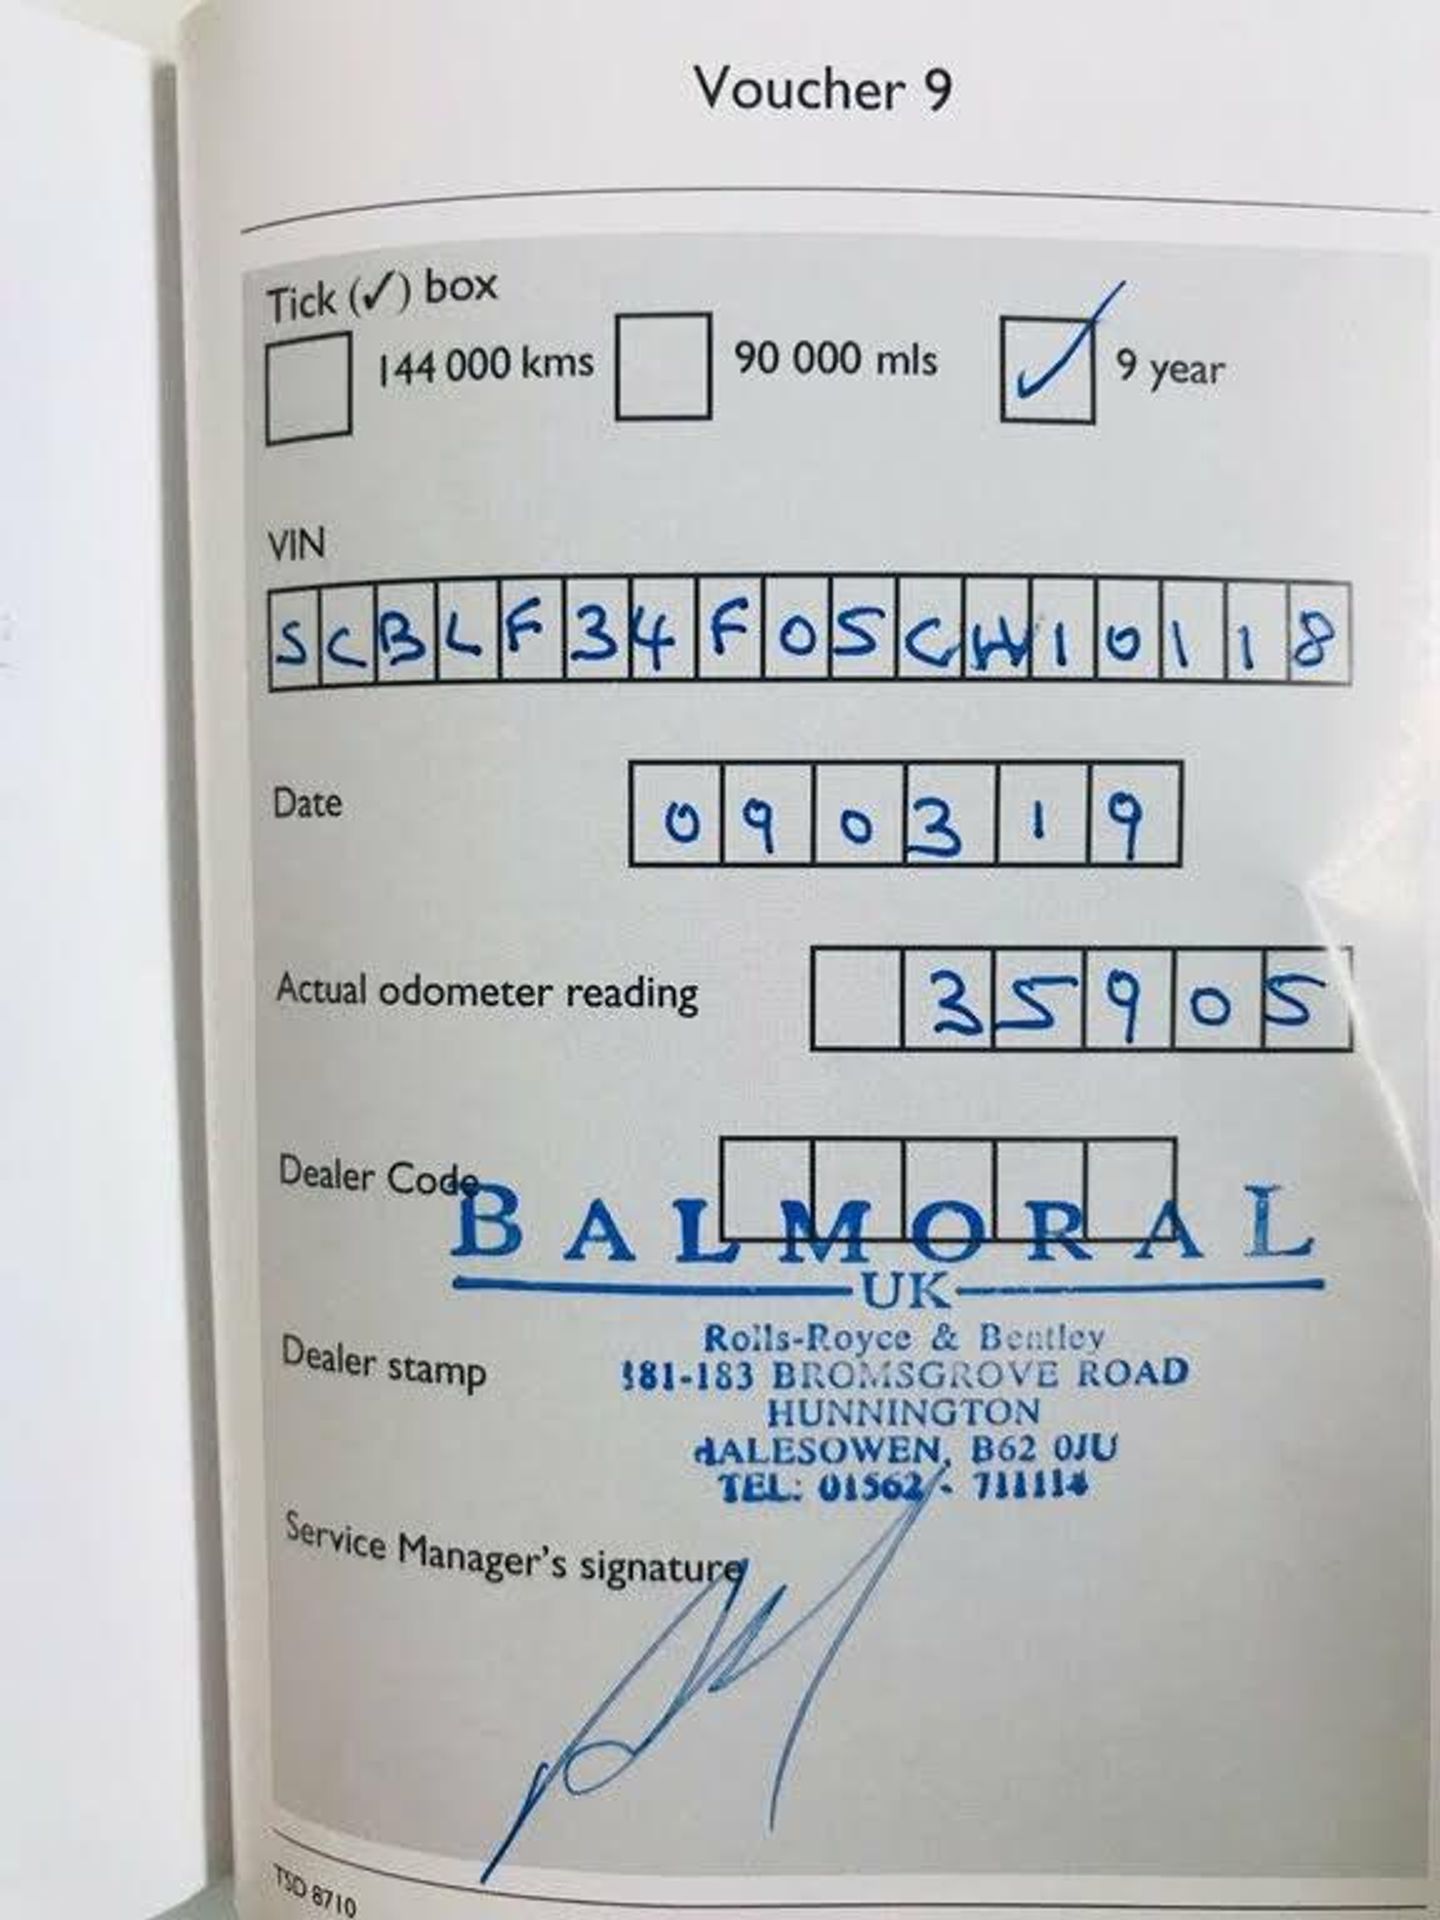 Voucher 9
Tick (✓) box
144 000 kms 90 000 mls ✓ 9 year
VIN
SCBLF34F05CH10118
Date 090319
Actual odometer reading 35905
Dealer Code
BALMORAL
UK
Rolls-Royce & Bentley
Dealer stamp 181-183 BROMSGROVE ROAD
HUNNINGTON
HALESOWEN, B62 0JU
TEL: 01562 - 711114
Service Manager's signature
TSD 8710